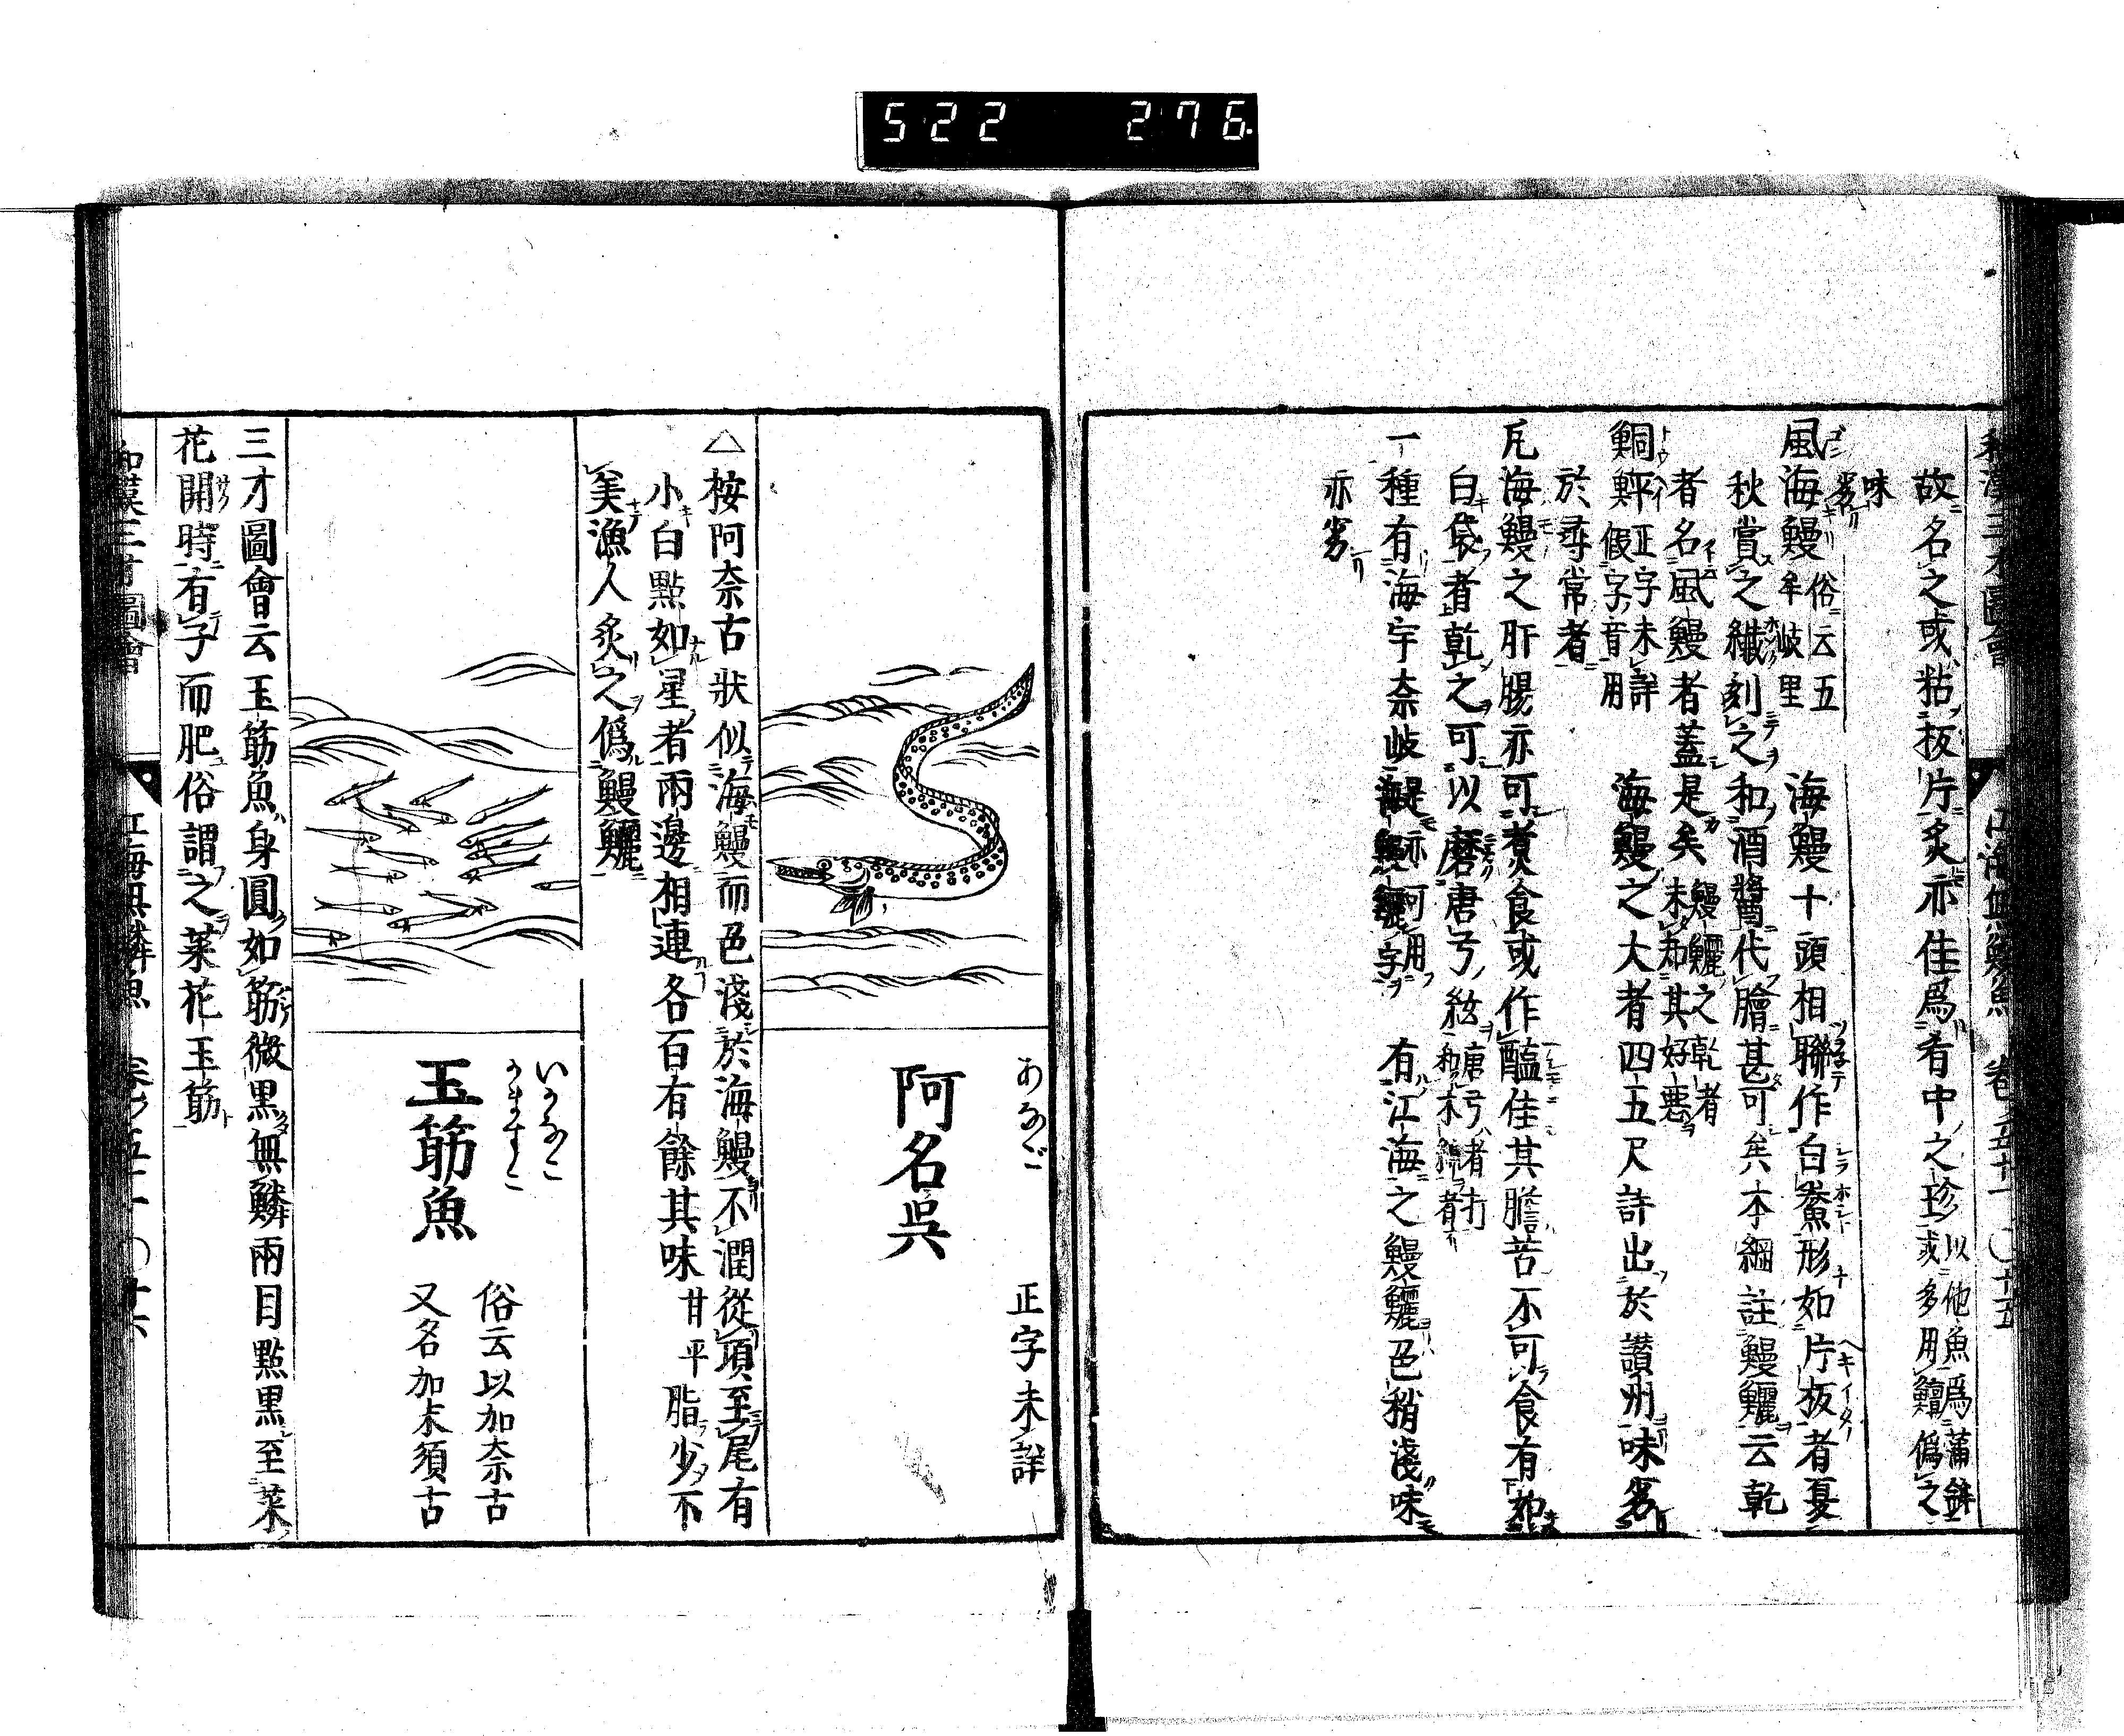 522 276.
和漢三才圖會 江海無鱗魚 卷之五十一 〇十五
故名之或粘扳片炙亦佳爲肴中之珍以他魚爲蒲鉾
或多用鱣僞之
味劣
風海鰻 俗云五牟岐里 海鰻十頭相聯作白鯗形如片扳者夏
秋賞之纎刻之和酒醬代膾甚可矣本綱註鰻鱺云乾
者名風鰻者蓋是矣 鰻鱺之乾者未知其好惡
鮦鮃 正字未詳假字音用 海鰻之大者四五尺許出於讃州味劣
於尋常者
凡海鰻之肝腸亦可煮食或作醢佳其膽苦不可食有如
白袋者乾之可以磨唐弓絃 唐弓者打和木綿者
一種有海宇奈岐 是亦可用海鰻鱺字 有江海之鰻鱺色稍淺味
亦劣
あなご
阿名呉 正字未詳
△按阿奈古狀似海鰻而色淺於海鰻不潤從項至尾有
小白點如星者兩邊相連各百有餘其味甘平脂少不
美漁人炙之僞鰻鱺
いかなご
かますご
玉筯魚 俗云以加奈古
又名加末須古
三才圖會云玉筯魚身圓如筯微黒無鱗兩目㸃黒至菜
花開時有子而肥俗謂之菜花玉筯
和漢三才圖會 江海無鱗魚 卷之五十一 〇十六